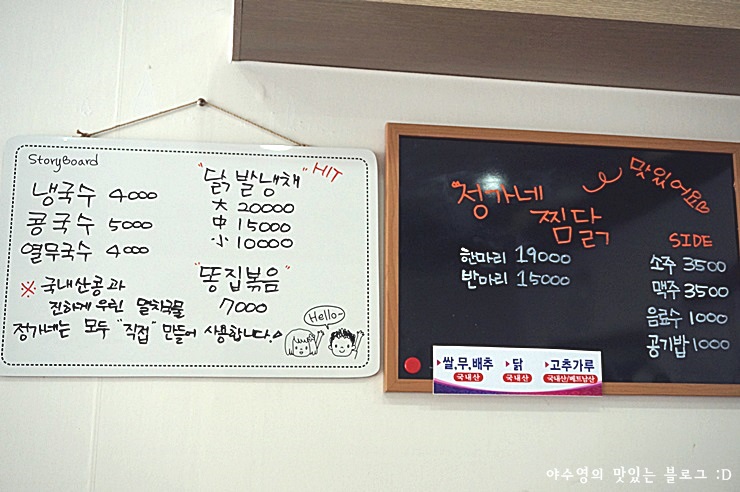 StoryBoard
냉국수 4000
콩국수 5000
열무국수 4000
"닭발냉채" HIT
大 20000
中 15000
小 10000
"똥집볶음"
7000
※ 국내산콩과
진하게 우린 멸치국물
정가네는 모두 "직접" 만들어 사용합니다.
Hello~
정가네 찜닭
맛있어요
한마리 19000
반마리 15000
SIDE
소주 3500
맥주 3500
음료수 1000
공기밥 1000
쌀,무,배추 닭 고추가루
국내산 국내산 국내산/베트남산
야수영의 맛있는 블로그 :D